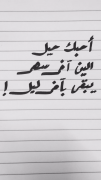 أحبك حيل
الين آخر سهر
يبقى بآخر ليل !